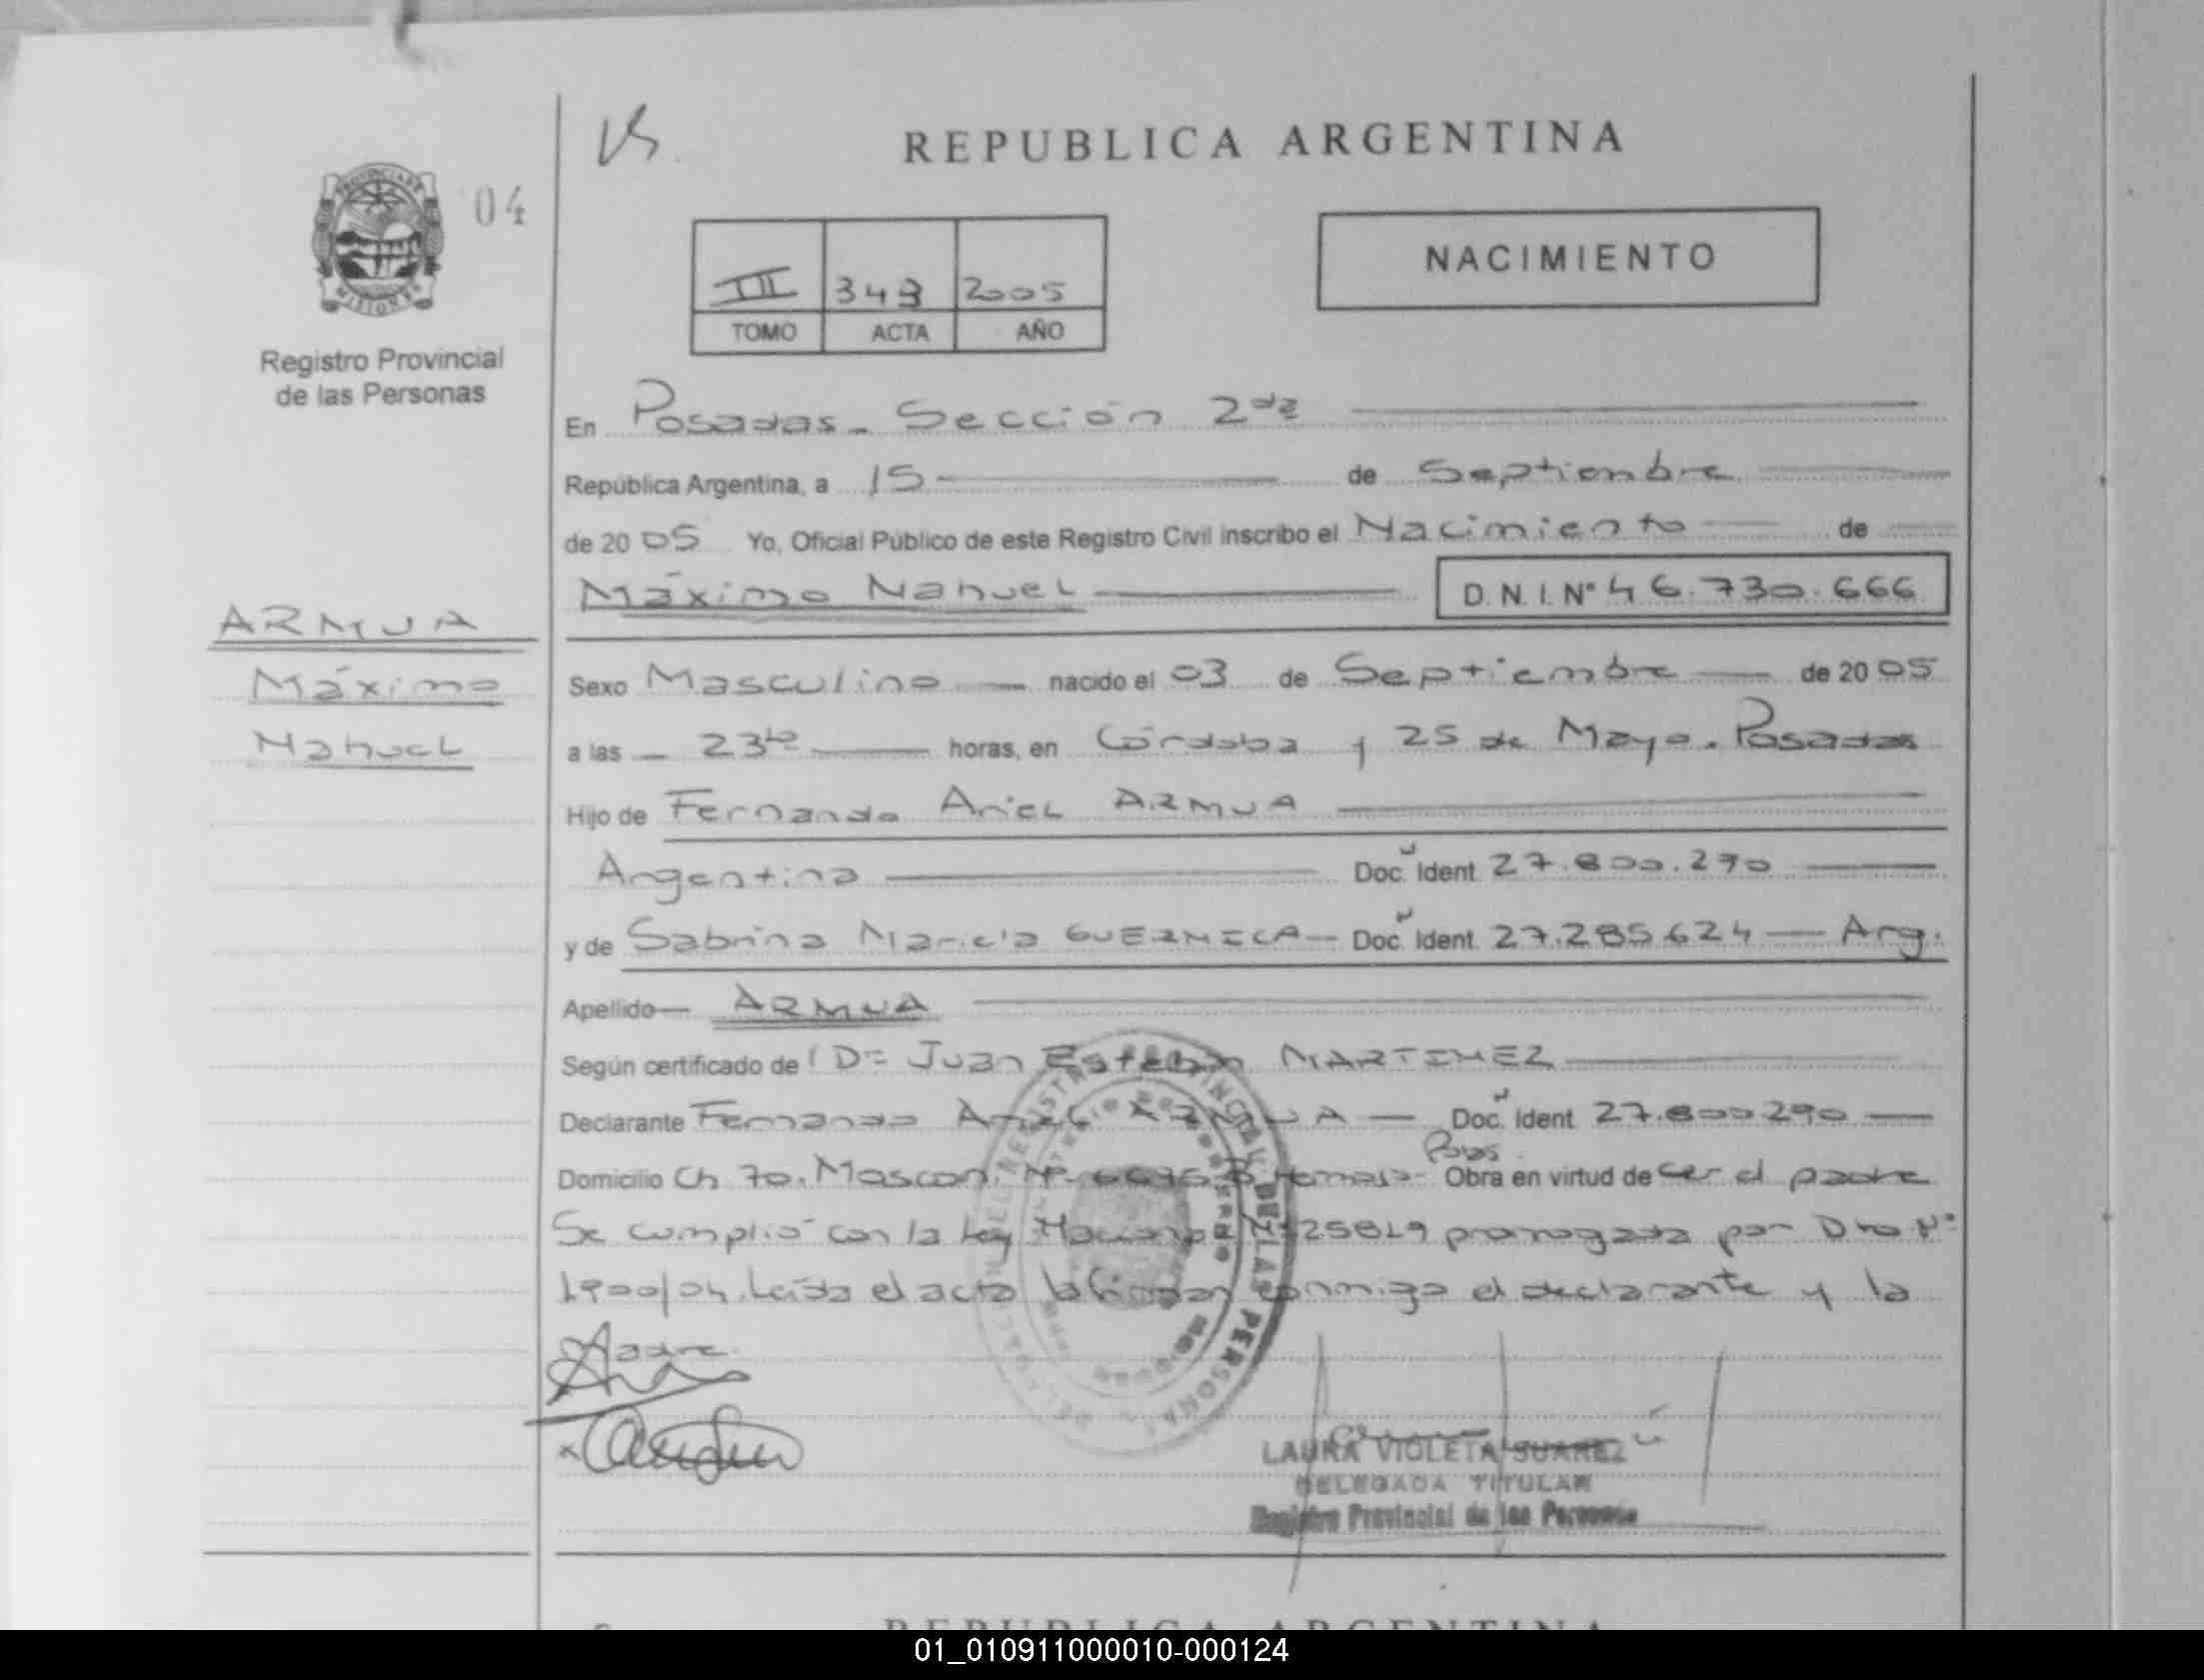 REPUBLICA ARGENTINA
04
PROVINCIA DE
MISIONES
Registro Provincial
de las Personas
NACIMIENTO
III 343 2005
TOMO ACTA AÑO
En Posadas - Sección 2da
República Argentina, a 15 de Septiembre
de 2005 Yo, Oficial Público de este Registro Civil inscribo el Nacimiento de
Máximo Nahuel D.N.I.Nº 46.730.666
ARMUA
Máximo
Nahuel
Sexo Masculino nacido el 03 de Septiembre de 2005
a las 23 horas, en Córdoba y 25 de Mayo. Posadas
Hijo de Fernando Ariel ARMUA
Argentina Doc. Ident. 27.800.290
y de Sabrina Maricia GUERMECA Doc. Ident. 27.285.624 Arg.
Apellido ARMUA
Según certificado de Dr Juan Esteban MARTINEZ
Declarante Fernando Ariel ARMUA Doc. Ident. 27.800290
Pdas.
Domicilio Ch 70. Mascon. Nº Obra en virtud de ser el padre
Se cumplió con la Ley Nacional 25819 prorrogada por Dto Nº
1900/04. Leída el acta la firman conmigo el declarante y la
Madre
LAURA VIOLETA SUAREZ
DELEGADA TITULAR
Registro Provincial de las Personas
REPUBLICA ARGENTINA
01_010911000010-000124